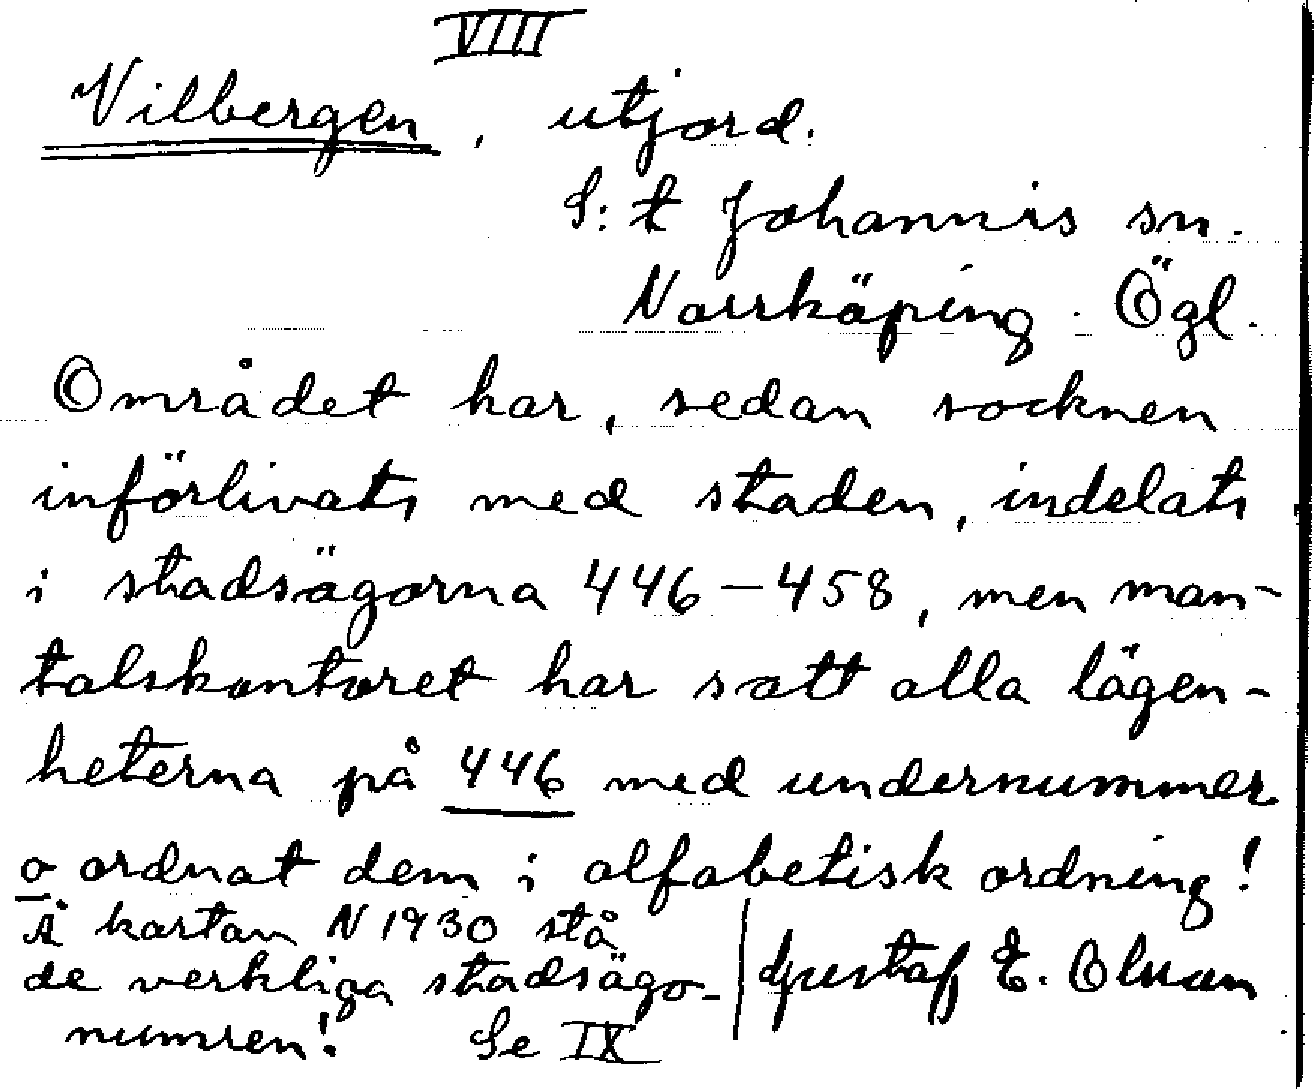 VIII
Vilbergen, utjord.
S:t Johannis sn.
Norrköping. Ögl.
Området har, sedan socknen
införlivats med staden, indelats
i stadsägorna 446–458, men man-
talskontoret har satt alla lägen-
heterna på 446 med undernummer
o ordnat dem i alfabetisk ordning!
Å kartan N 1930 stå
de verkliga stadsägo-
numren! Se IX
Gustaf E. Olsson